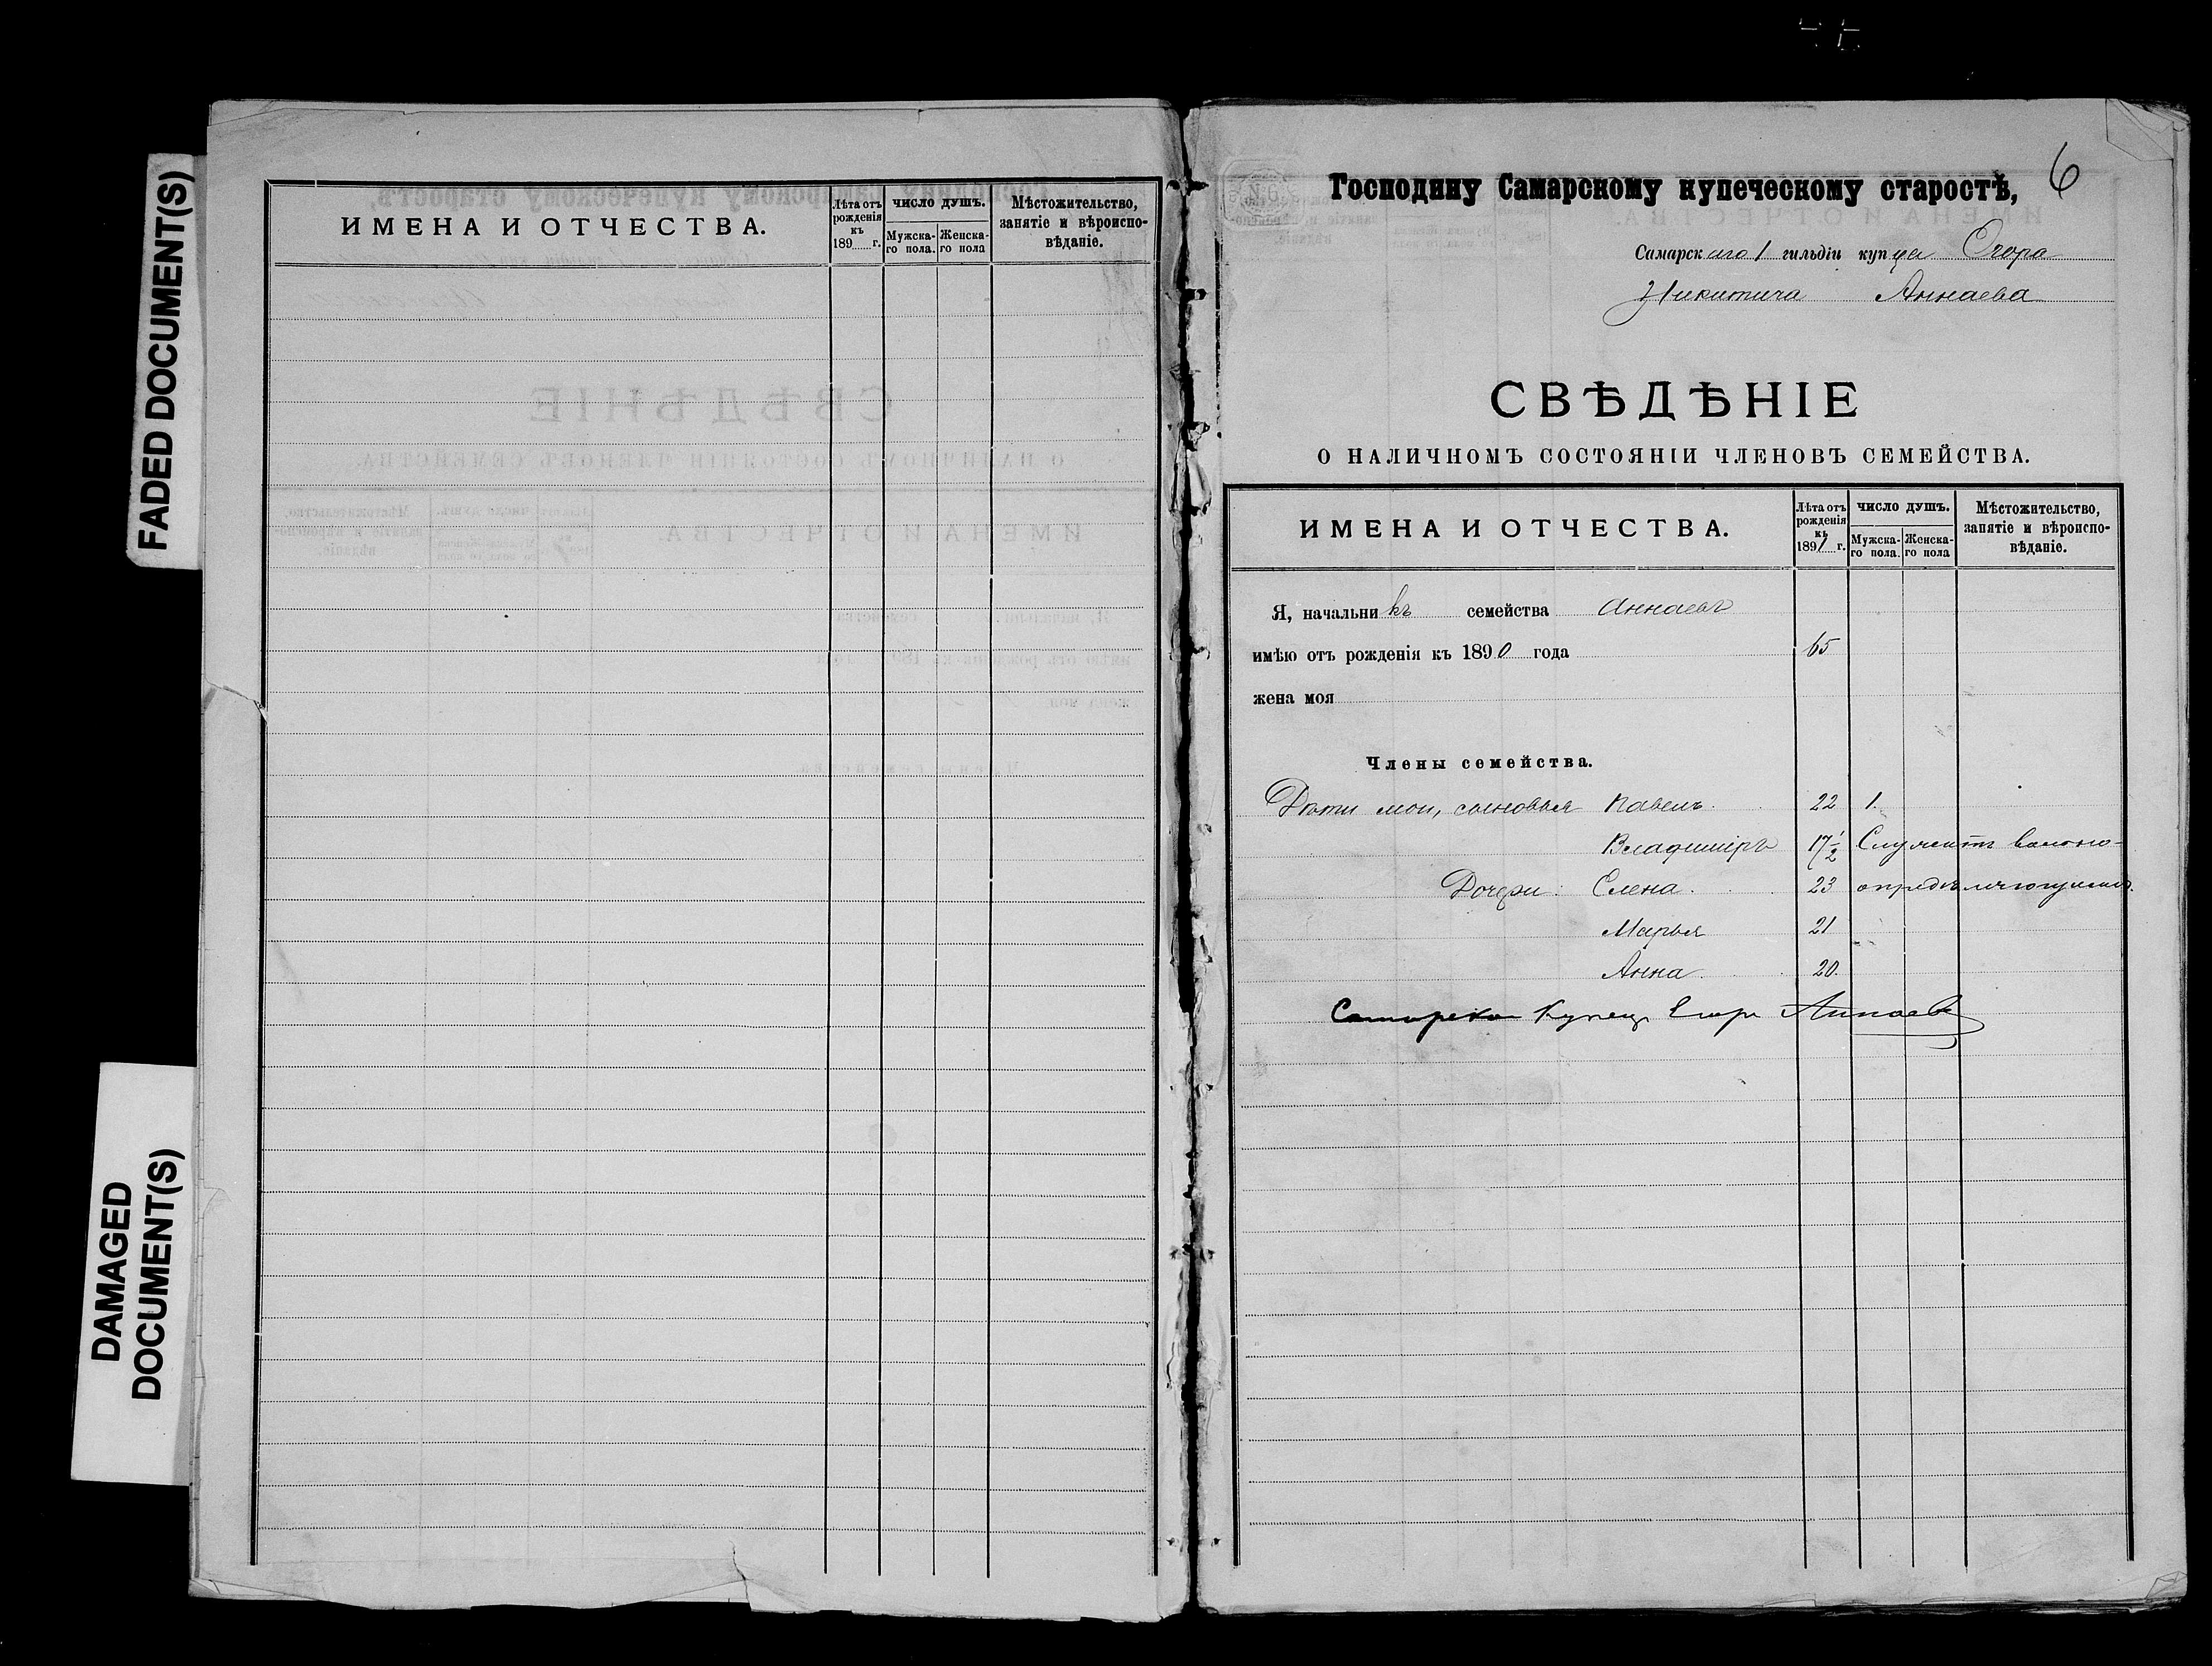 FADED DOCUMENT(S)
DAMAGED
DOCUMENT(S)
ИМЕНА И ОТЧЕСТВА.
Лѣта отъ
рожденія
къ
189 г.
ЧИСЛО ДУШЪ.
Мужска-
го пола.
Женска-
го пола
Мѣстожительство,
занятіе и вѣроиспо-
вѣданіе.
6
Господину Самарскому купеческому старостѣ,
Самарскаго 1 гильдіи купца Егора
Никитича Аннаева
СВѢДѢНІЕ
О НАЛИЧНОМЪ СОСТОЯНІИ ЧЛЕНОВЪ СЕМЕЙСТВА.
ИМЕНА И ОТЧЕСТВА.
Лѣта отъ
рожденія
къ
1891 г.
ЧИСЛО ДУШЪ.
Мужска-
го пола.
Женска-
го пола
Мѣстожительство,
занятіе и вѣроиспо-
вѣданіе.
Я, начальникъ семейства Аннаевъ
имѣю отъ рожденія къ 1890 года 65
жена моя
Члены семейства.
Дѣти мои, сыновья Павелъ. 22 1.
Владиміръ 17 1/2 Служитъ вольно-
Дочери: Елена. 23 опредѣляющимся.
Марья 21
Анна. 20.
Самарскій Купецъ Егоръ Аннаевъ